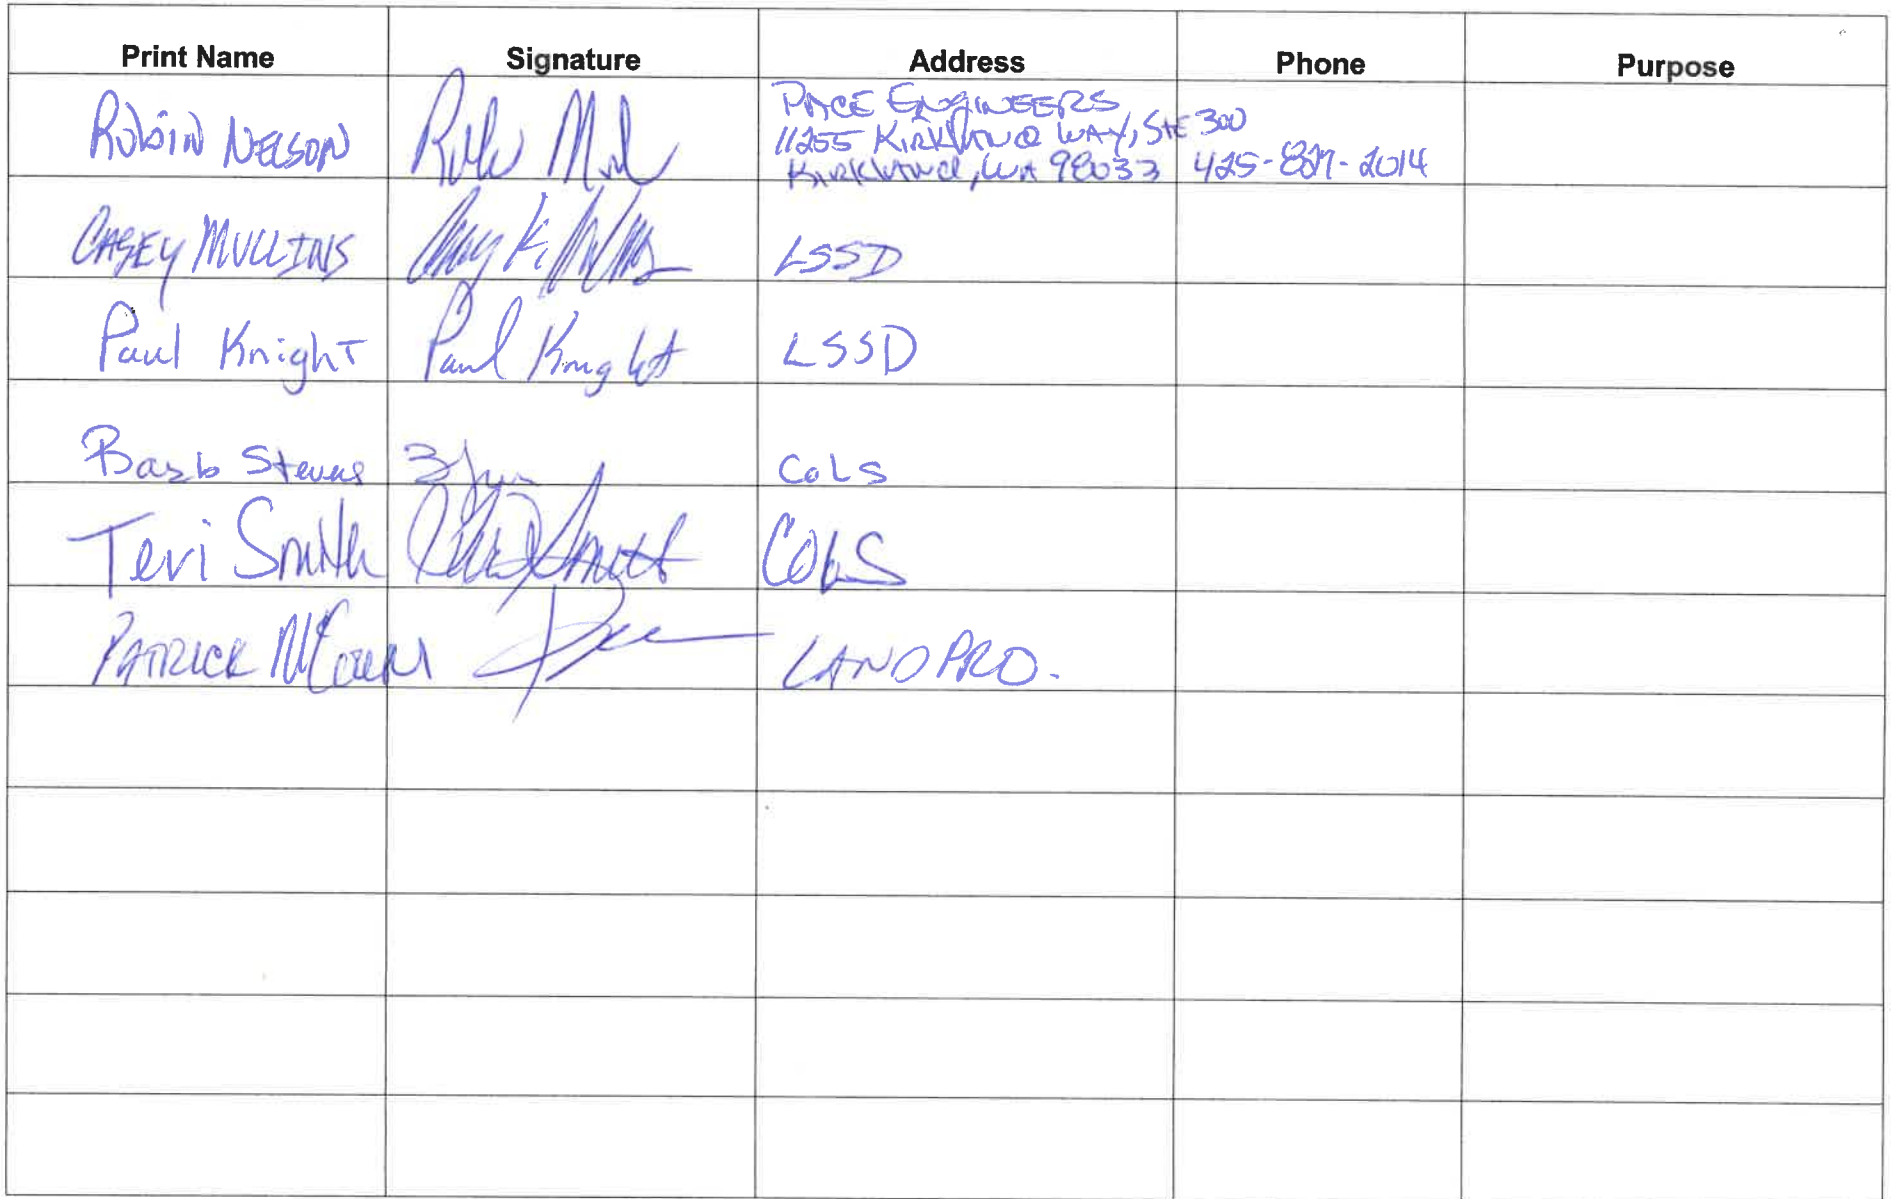 Print Name Signature Address Phone Purpose
ROBIN NELSON PACE ENGINEERS
11255 KIRKLAND WAY, STE 300
KIRKLAND, WA 98033 425-827-2014
CASEY MULLINS LSSD
Paul Knight Paul Knight LSSD
Barb Stevens CoLS
Teri Smith Teri Smith COLS
PATRICK LANDPRO.